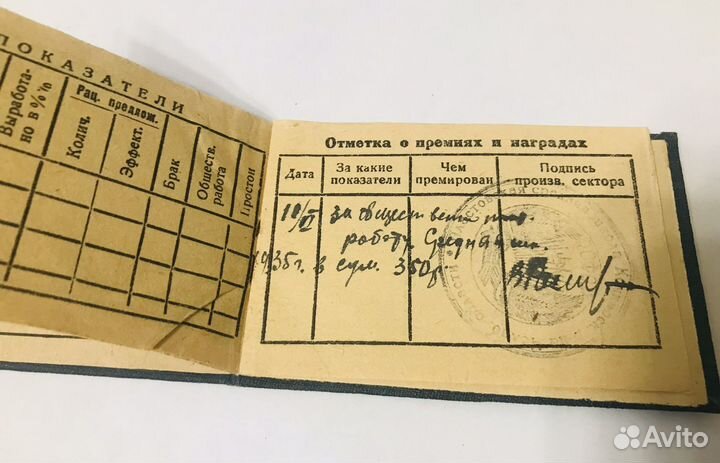 ПОКАЗАТЕЛИ
Выработа-
но в %%
Рац. предлож.
Колич.
Эффект.
Брак
Обществ.
работа
Простои
Отметка о премиях и наградах
Дата
За какие
показатели
Чем
премирован
Подпись
произв. сектора
за обществен
работу
1935г. в сум. 350р.
Avito